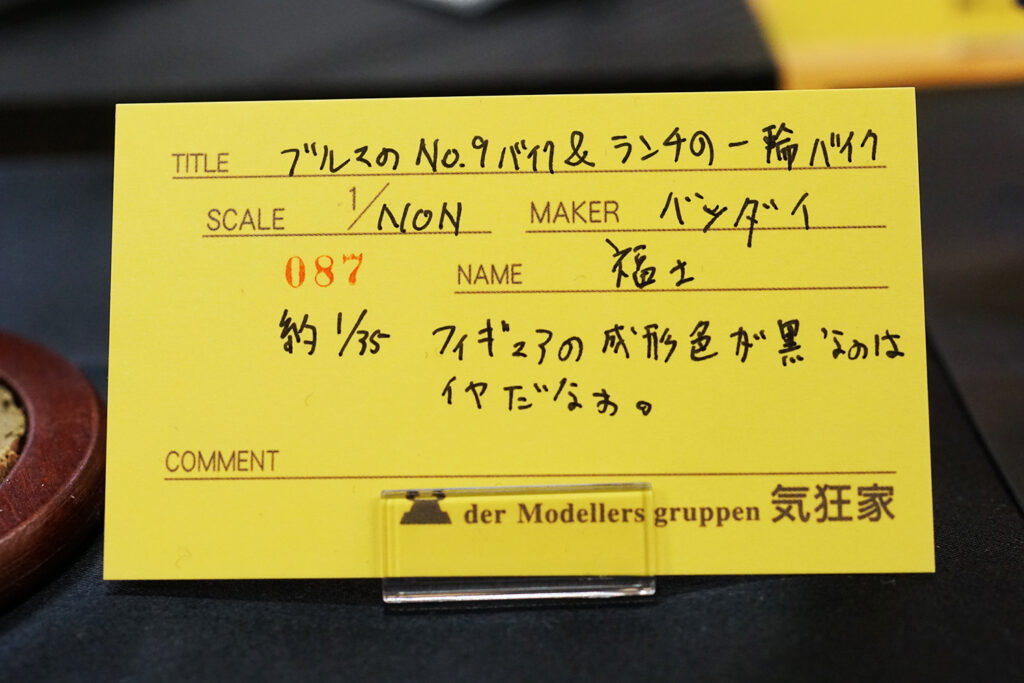 TITLE ブルマのNo.9バイク&ランチの一輪バイク
SCALE 1/NON MAKER バンダイ
087 NAME 福士
約1/35 フィギュアの成形色が黒なのは
イヤだなぁ。
COMMENT
der Modellers gruppen 気狂家